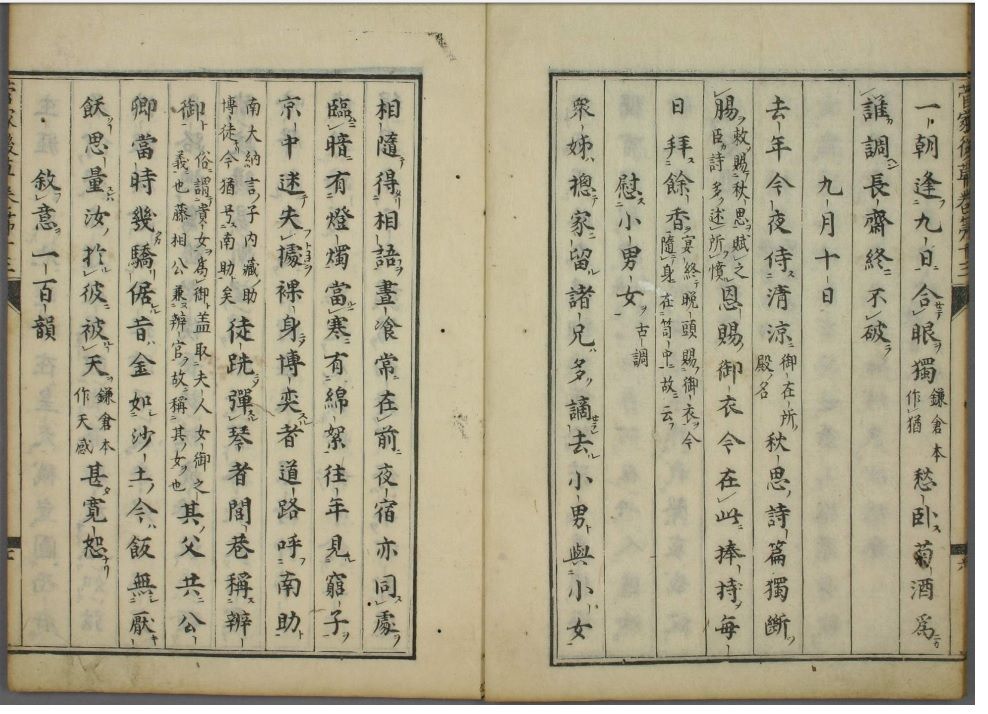 一朝逢九日合眼獨鎌倉本作猶愁臥菊酒爲
誰調長齋終不破
九月十日
去年今夜侍清涼御在所殿名秋思詩篇獨斷
腸勅賜秋思賦之臣詩多述所憤恩賜御衣今在此捧持每
日拜餘香宴終晚頭賜御衣今隨身在笥中故云
慰小男女古調
衆姊摠家留諸兄多謫去小男與小女
相隨得相語晝飡常在前夜宿亦同處
臨暗有燈燭當寒有綿絮往年見窮子
京中迷失據裸身博奕者道路呼南助
南大納言子內藏助博徒今猶号南助矣徒跣彈琴者閭巷稱辨
御俗謂貴女爲御蓋取夫人女御之義也藤相公兼辨官故稱其女也其父共公
卿當時幾驕倨昔金如沙土今飯無厭
飫思量汝於彼被天鎌倉本作天感甚寬恕
敘意一百韻